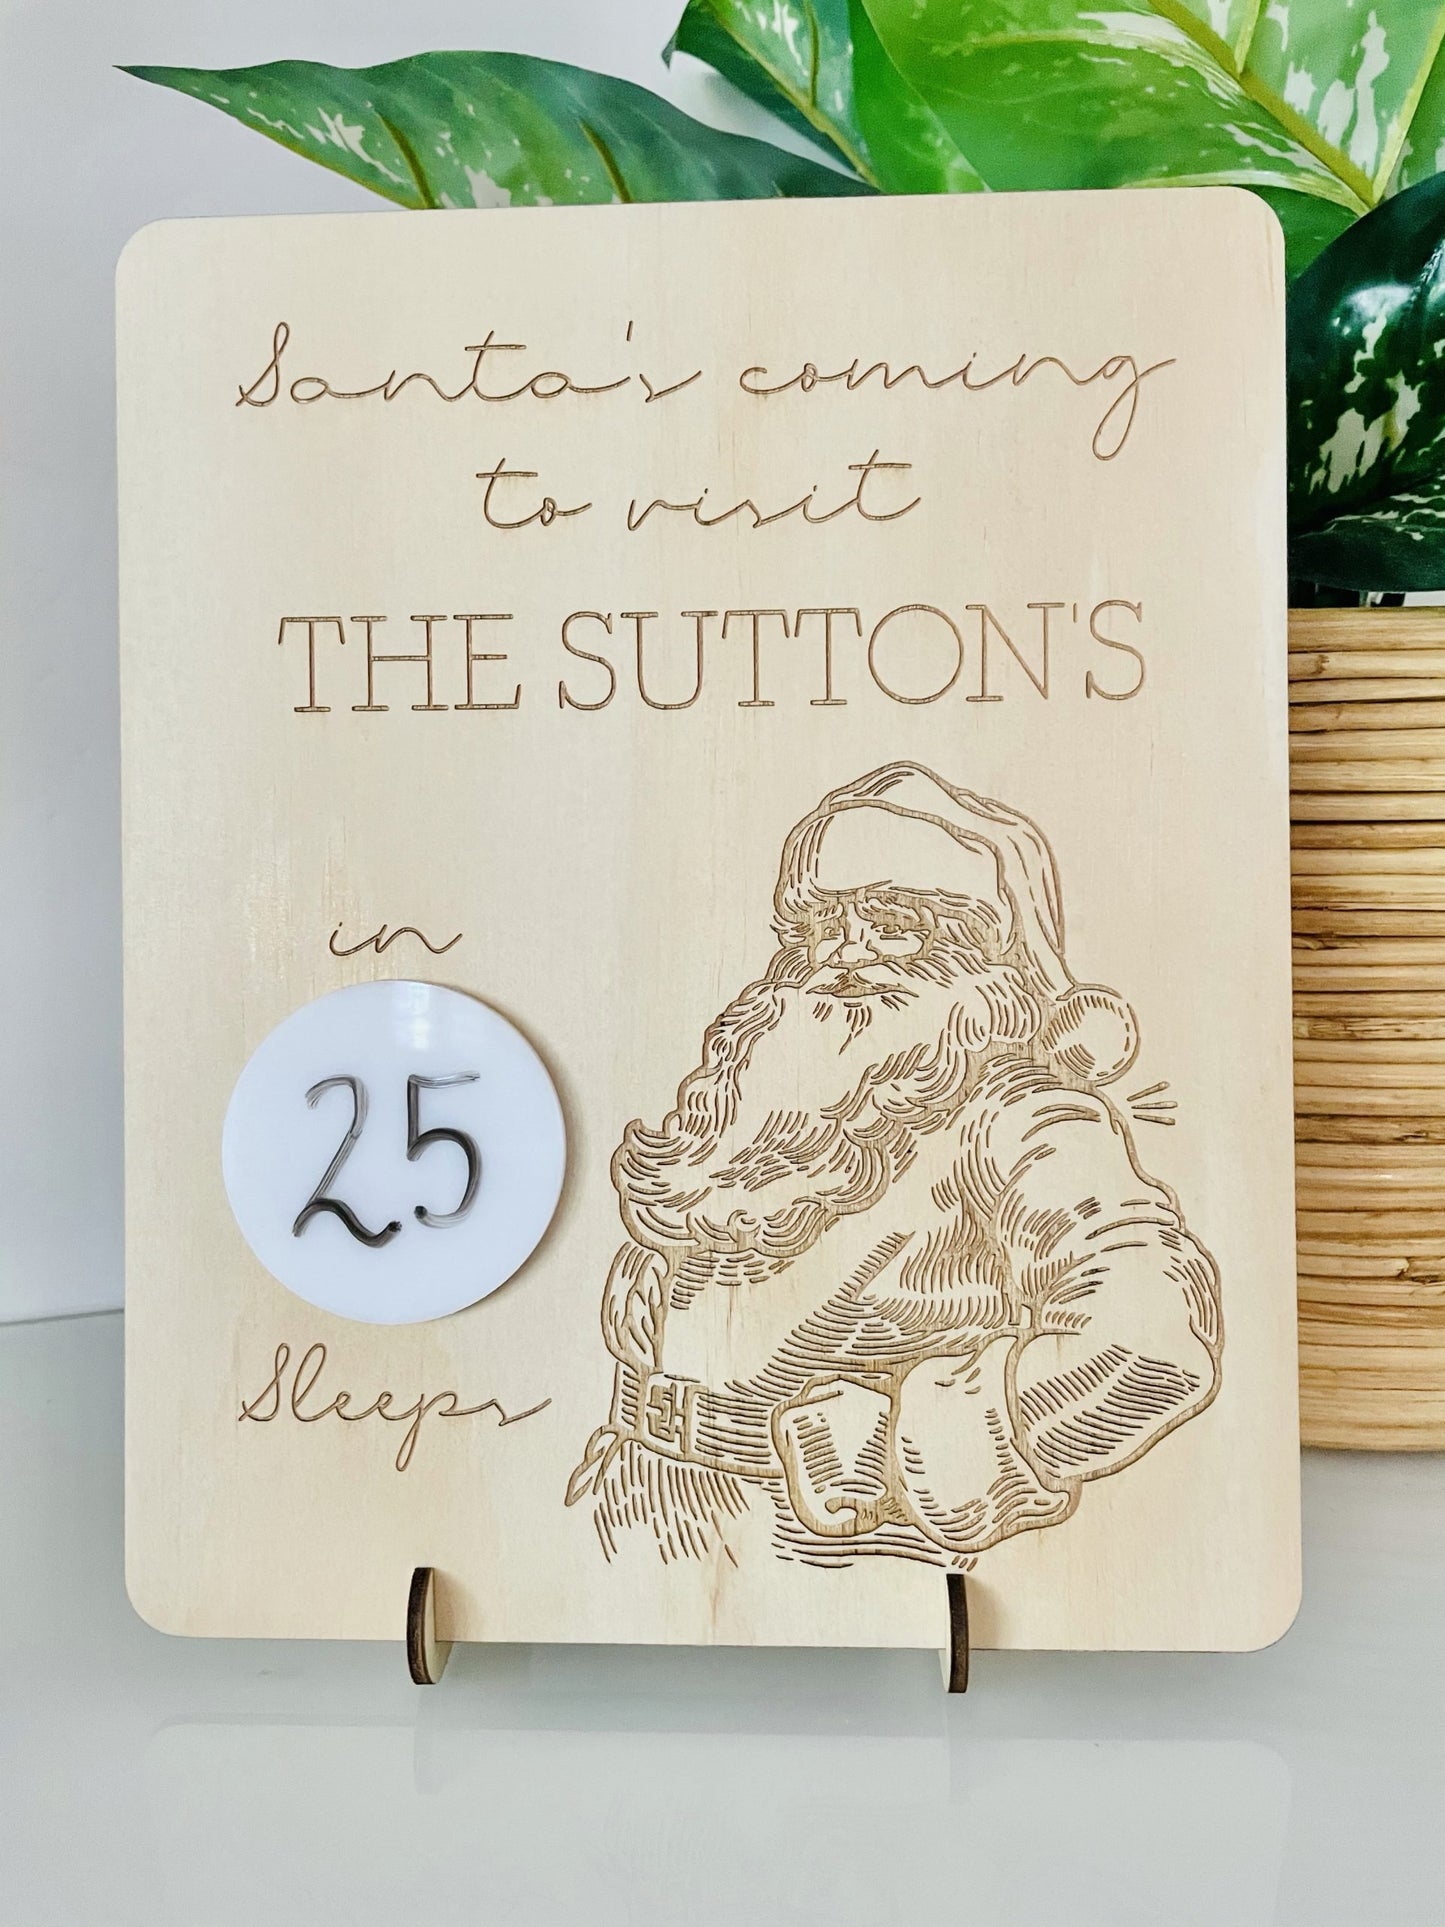 Santa's coming
to visit
THE SUTTON'S
in
25
Sleeps